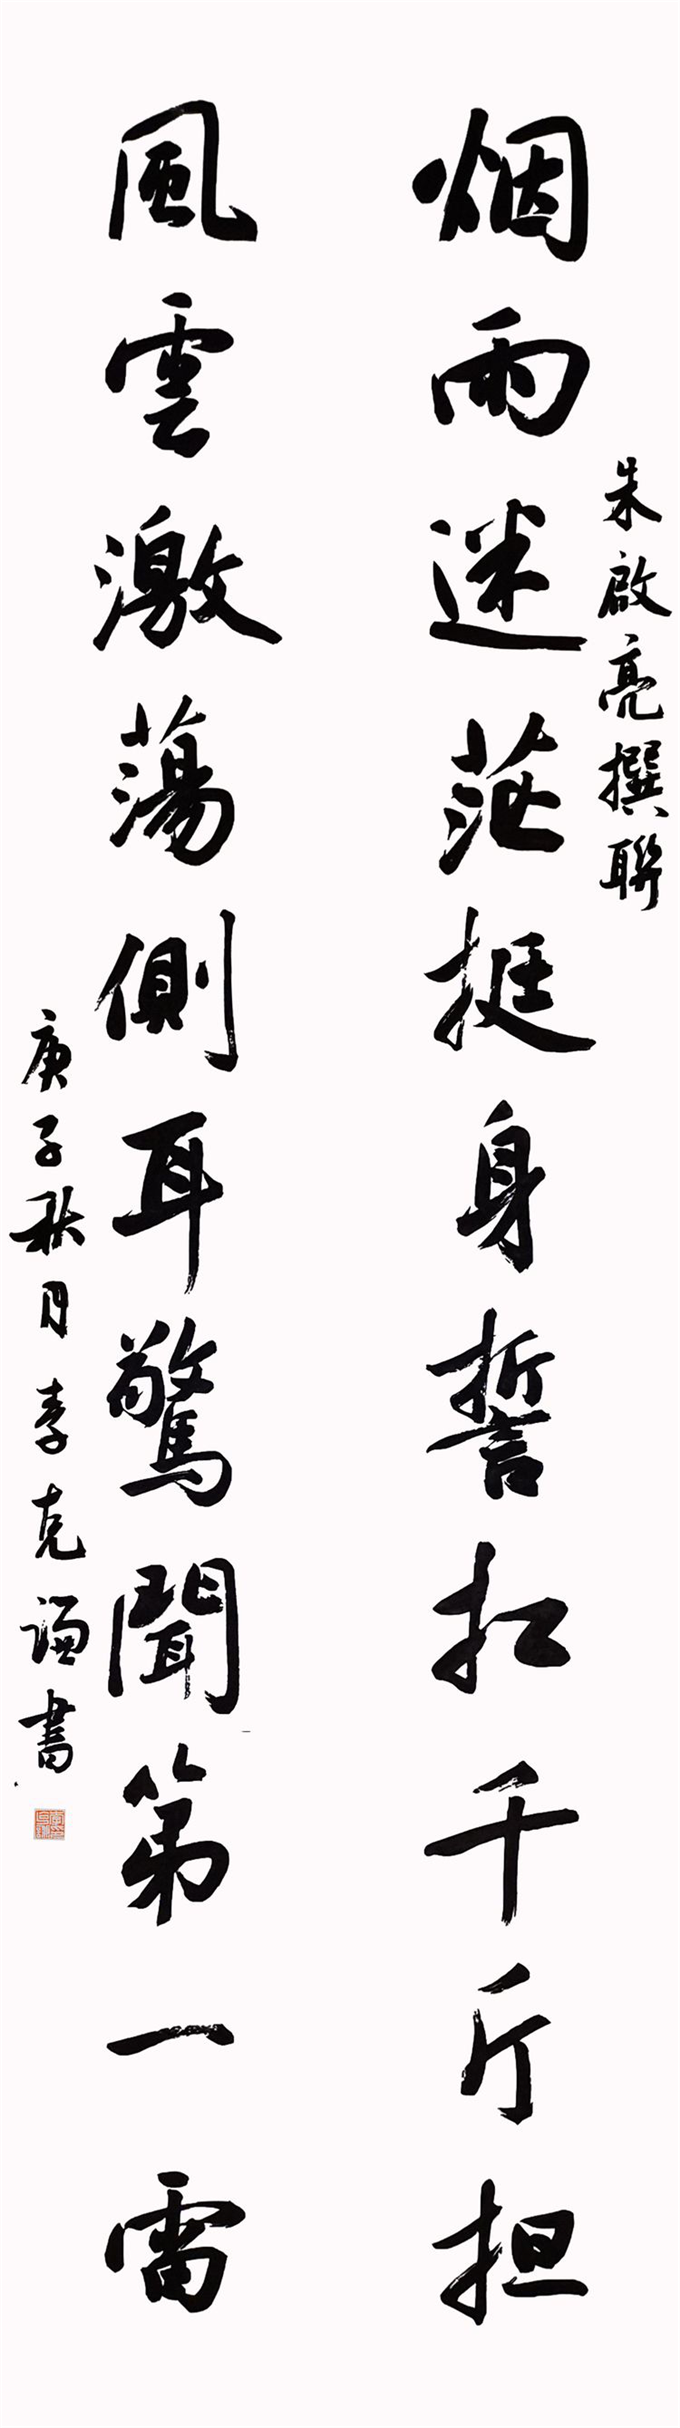 朱啟亮撰聯
烟雨迷茫挺身誓扛千斤担
風雲激蕩側耳驚聞第一雷
庚子秋月李克谦書